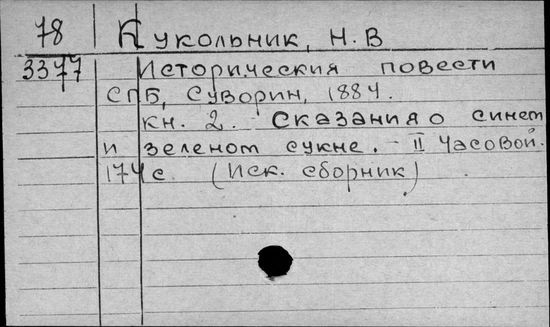 78 Кукольник, Н. В
3377 Исторические повести
СПБ, Суворин, 1884.
кн. 2. Сказания о синем
и зеленом сукне. - II Часовой.
174 с. (Иск. сборник)